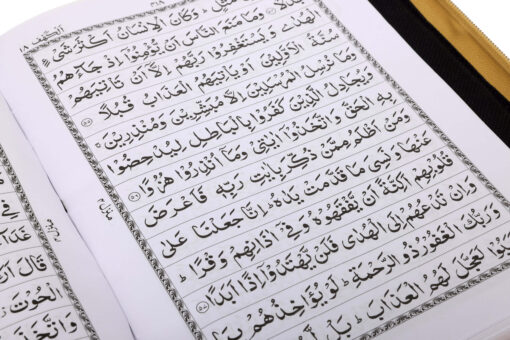 الكهف ١٨
مَثَلٍ ؕ وَكَانَ الْاِنْسَانُ اَكْثَرَ شَيْءٍ
جَدَلًا وَمَا مَنَعَ النَّاسَ اَنْ يُّؤْمِنُوْٓا اِذْ جَآءَهُمُ
الْهُدٰى وَيَسْتَغْفِرُوْا رَبَّهُمْ اِلَّآ اَنْ تَاْتِيَهُمْ
سُنَّةُ الْاَوَّلِيْنَ اَوْ يَاْتِيَهُمُ الْعَذَابُ قُبُلًا ۝٥٥
وَمَا نُرْسِلُ الْمُرْسَلِيْنَ اِلَّا مُبَشِّرِيْنَ وَمُنْذِرِيْنَ ۚ
وَيُجَادِلُ الَّذِيْنَ كَفَرُوْا بِالْبَاطِلِ لِيُدْحِضُوْا
بِهِ الْحَقَّ وَاتَّخَذُوْٓا اٰيٰتِيْ وَمَآ اُنْذِرُوْا هُزُوًا ۝٥٦
وَمَنْ اَظْلَمُ مِمَّنْ ذُكِّرَ بِاٰيٰتِ رَبِّهٖ فَاَعْرَضَ
عَنْهَا وَنَسِيَ مَا قَدَّمَتْ يَدٰهُ ؕ اِنَّا جَعَلْنَا عَلٰى
قُلُوْبِهِمْ اَكِنَّةً اَنْ يَّفْقَهُوْهُ وَفِيْٓ اٰذَانِهِمْ وَقْرًا ؕ
وَاِنْ تَدْعُهُمْ اِلَى الْهُدٰى فَلَنْ يَّهْتَدُوْٓا اِذًا اَبَدًا ۝٥٧
وَرَبُّكَ الْغَفُوْرُ ذُو الرَّحْمَةِ ؕ لَوْ يُؤَاخِذُهُمْ بِمَا
لَعَجَّلَ لَهُمُ الْعَذَابَ ؕ بَلْ لَّهُمْ
فِي
قَالَ
الْحُوْتَ